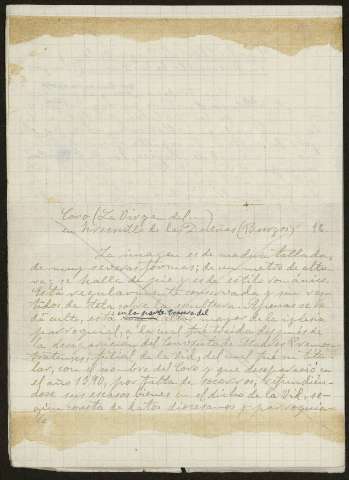 Coro (La Virgen del...)
en Fresnillo de las Dueñas (Burgos) 16.
La imagen es de madera tallada,
de muy severas formas; de un metro de altu-
ra; se halla de pie, y es de estilo románico.
Está regular- conservada y sin ves-
tidos de tela sobre la escultura. Apenas se la
da culto, está en la parte trasera del mayor de la iglesia
parroquial, a la cual fué traída después de
la desaparición del Convento de Monjas Premons-
tratenses, filial de la Vid, del cual fué su titu-
lar, con el nombre del Coro y que desapareció en
el año 1590, por falta de recursos, refundién-
dose sus escasos bienes en el dicho de la Vid, se-
gún consta de datos diocesanos y parroquia-
les